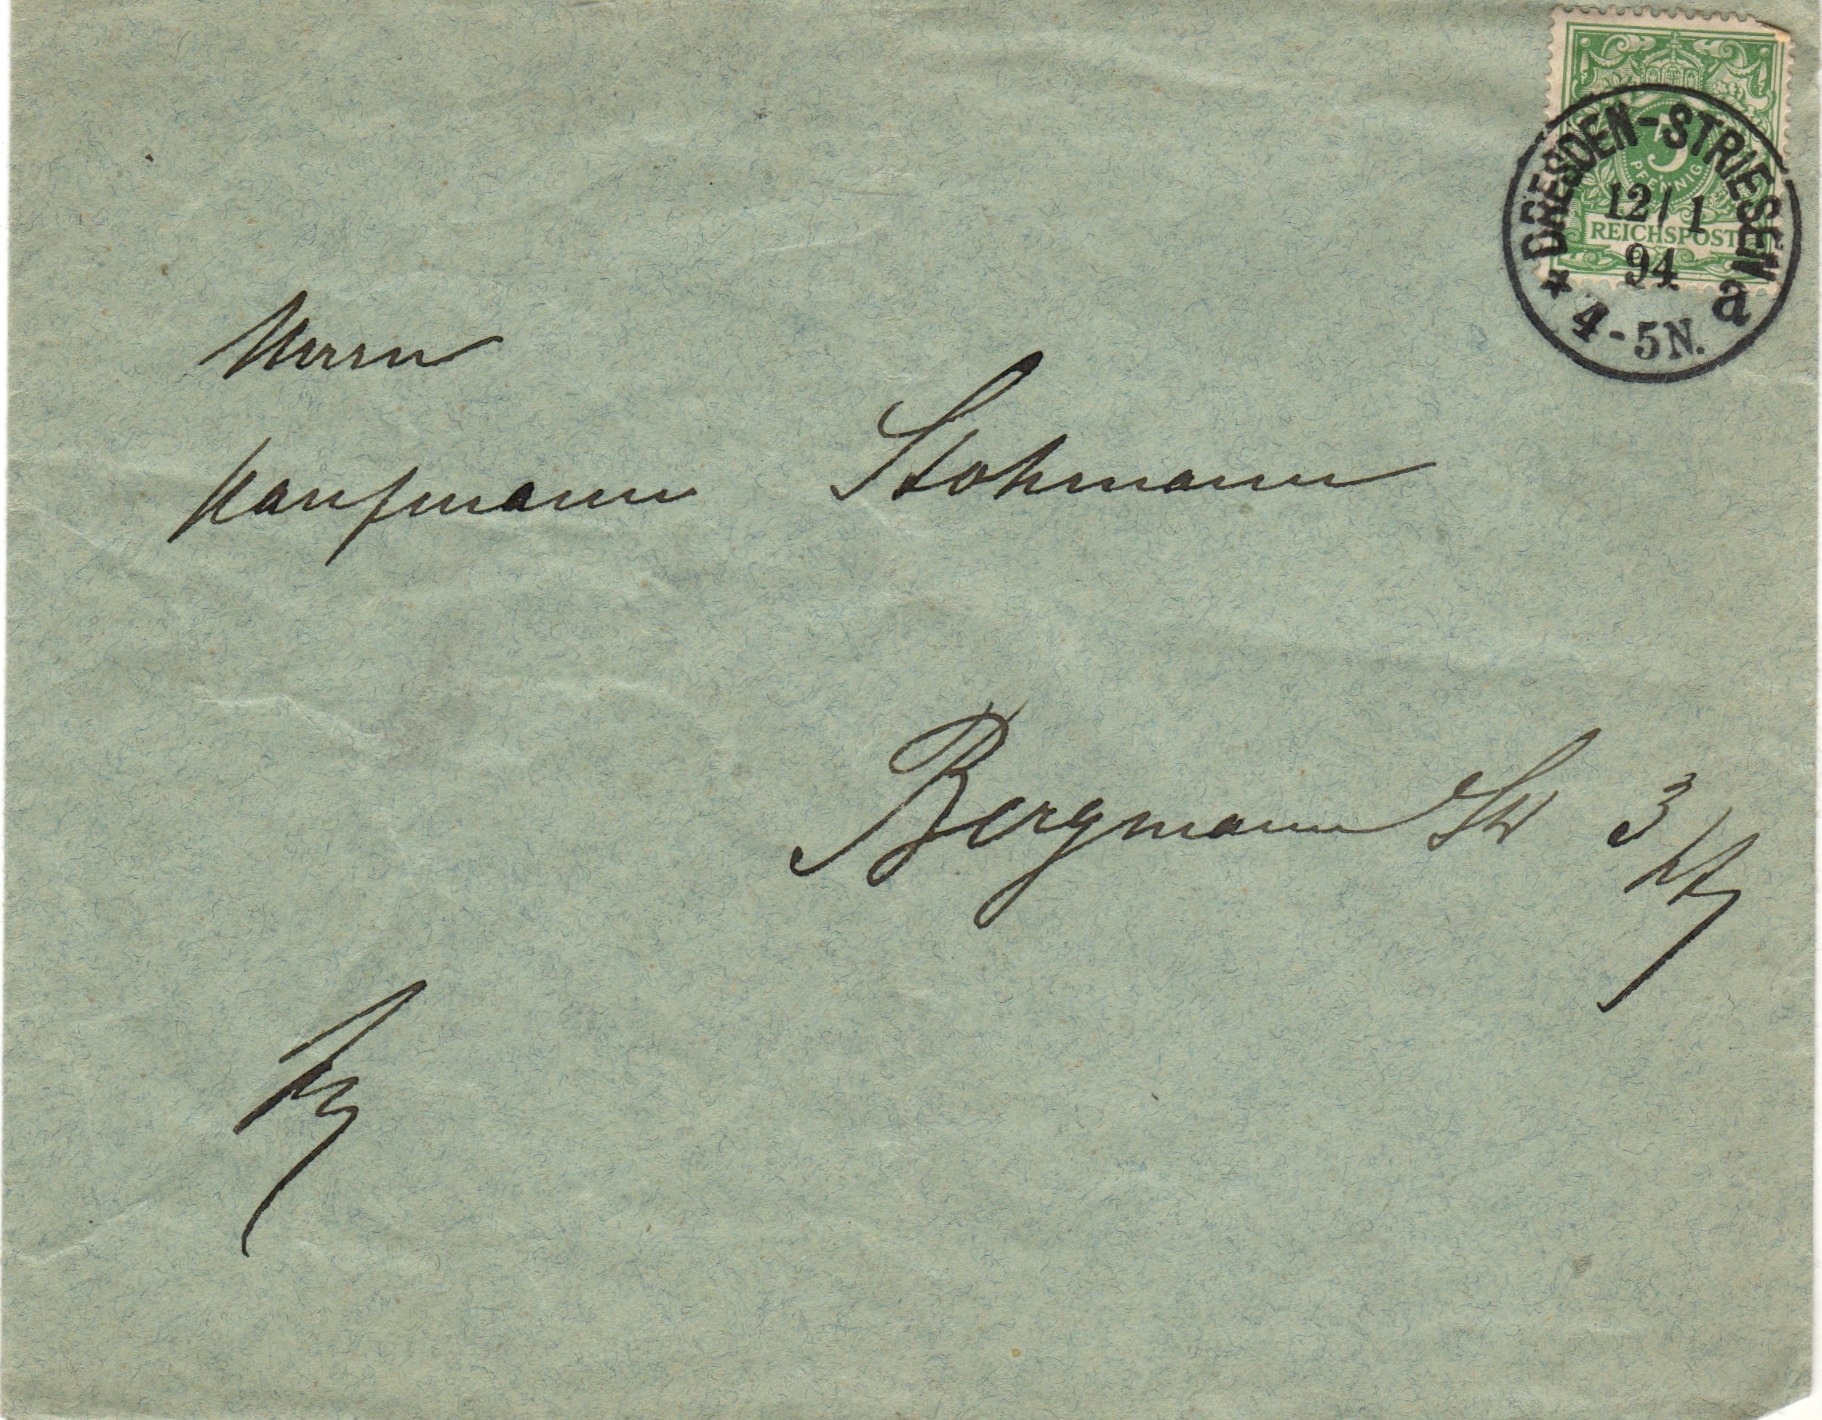 5
PFENNIG
REICHSPOST
DRESDEN-STRIESEN
12/1
94
a
4-5N.
Herrn
Kaufmann Stohmann
Bergmann Str 3